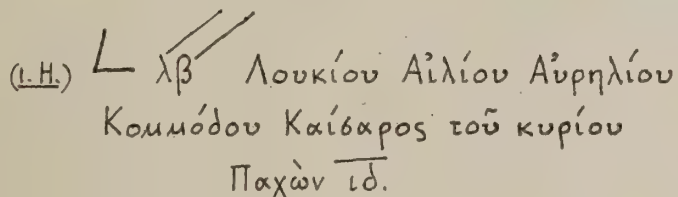 (1. H.) L λβ// Λουκίου Αἰλίου Αὐρηλίου
Κομμόδου Καίσαρος τοῦ κυρίου
Παχὼν ιδ.